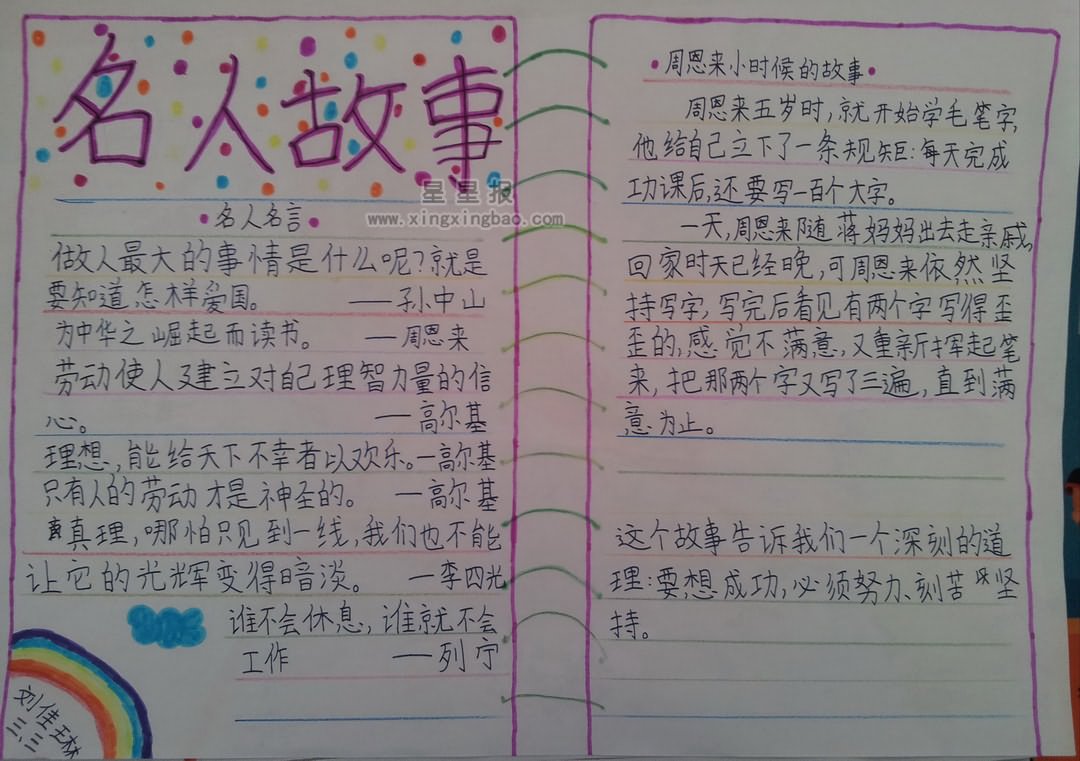 名人故事
星星报
www.xingxingbao.com
•名人名言•
做人最大的事情是什么呢?就是
要知道怎样爱国。 ——孙中山
为中华之崛起而读书。 ——周恩来
劳动使人建立对自己理智力量的信
心。 ——高尔基
理想,能给天下不幸者以欢乐。—高尔基
只有人的劳动才是神圣的。 —高尔基
真理,哪怕只见到一线,我们也不能
让它的光辉变得暗淡。 —李四光
谁不会休息,谁就不会
工作 ——列宁
刘佳琳
三、三
•周恩来小时候的故事•
周恩来五岁时,就开始学毛笔字,
他给自己立下了一条规矩:每天完成
功课后,还要写一百个大字。
一天,周恩来随蒋妈妈出去走亲戚,
回家时天已经晚,可周恩来依然坚
持写字,写完后看见有两个字写得歪
歪的,感觉不满意,又重新挥起笔
来,把那两个字又写了三遍,直到满
意为止。
这个故事告诉我们一个深刻的道
理:要想成功,必须努力、刻苦 坚
持。